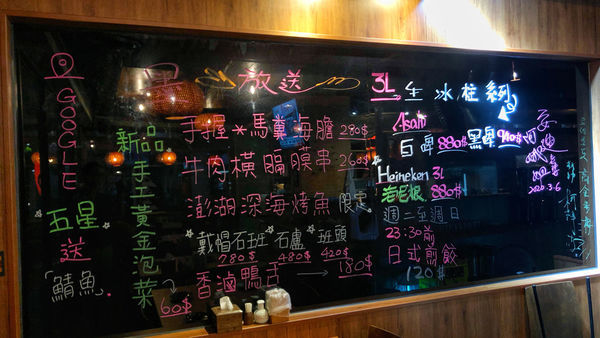 GOOGLE
五星
送
鯖魚
新品
手工黃金泡菜
60$
放送
手握*馬糞海膽 290$
牛肉橫膈膜串 260$
澎湖深海烤魚 限定
戴帽石班 石盧 班頭
780$ 480$ 420$
香滷鴨舌 → 180$
3L 生冰柱系列
Asahi
白啤 880$ 黑啤 940$
Heineken 3L
海尼根 880$
週二至週日
23:30前
日式煎餃
120$
2020.3.6